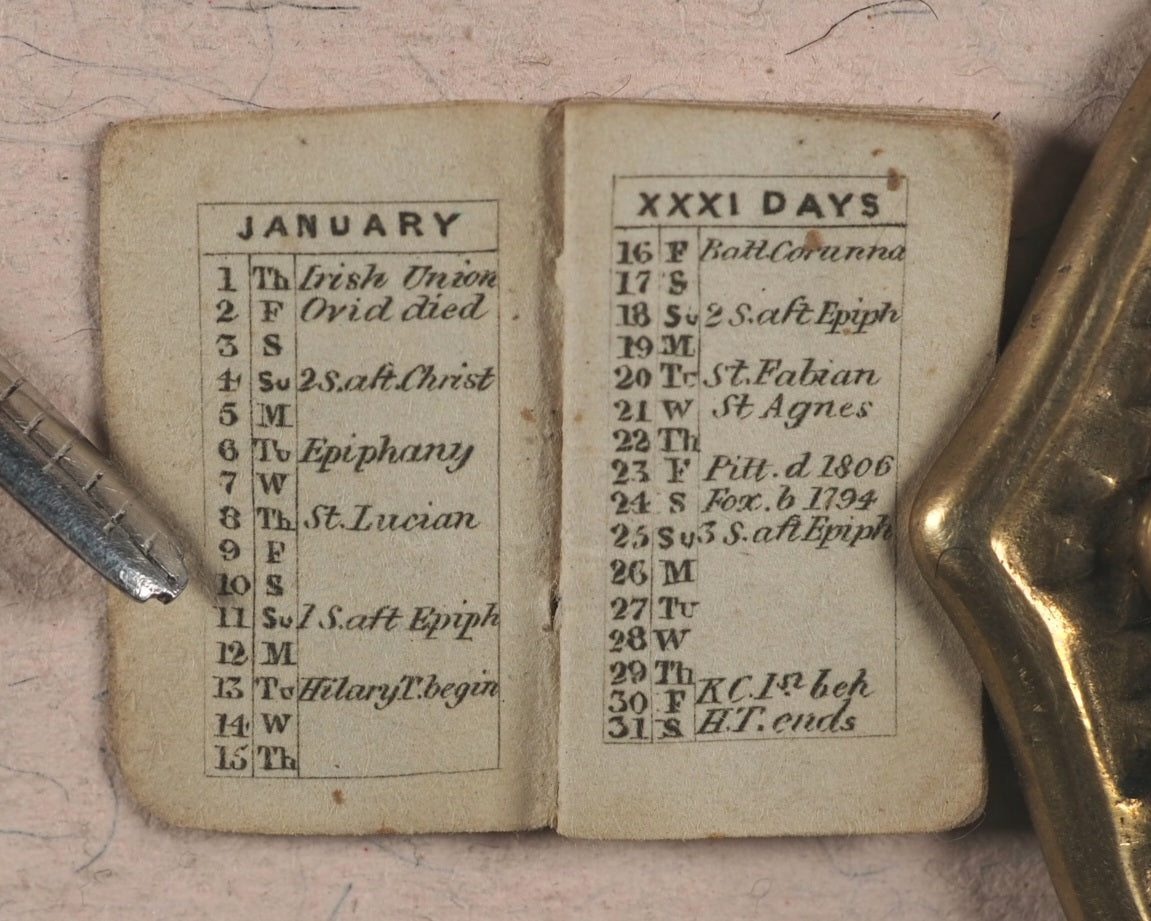 JANUARY
1 Th Irish Union
2 F Ovid died
3 S
4 Su 2 S. aft. Christ
5 M
6 Tu Epiphany
7 W
8 Th St. Lucian
9 F
10 S
11 Su 1 S. aft Epiph
12 M
13 Tu Hilary T. begin
14 W
15 Th
XXXI DAYS
16 F Batt. Corunna
17 S
18 Su 2 S. aft Epiph
19 M
20 Tu St. Fabian
21 W St Agnes
22 Th
23 F Pitt. d 1806
24 S Fox. b 1794
25 Su 3 S. aft Epiph
26 M
27 Tu
28 W
29 Th
30 F K C. 1st beh
31 S H. T. ends